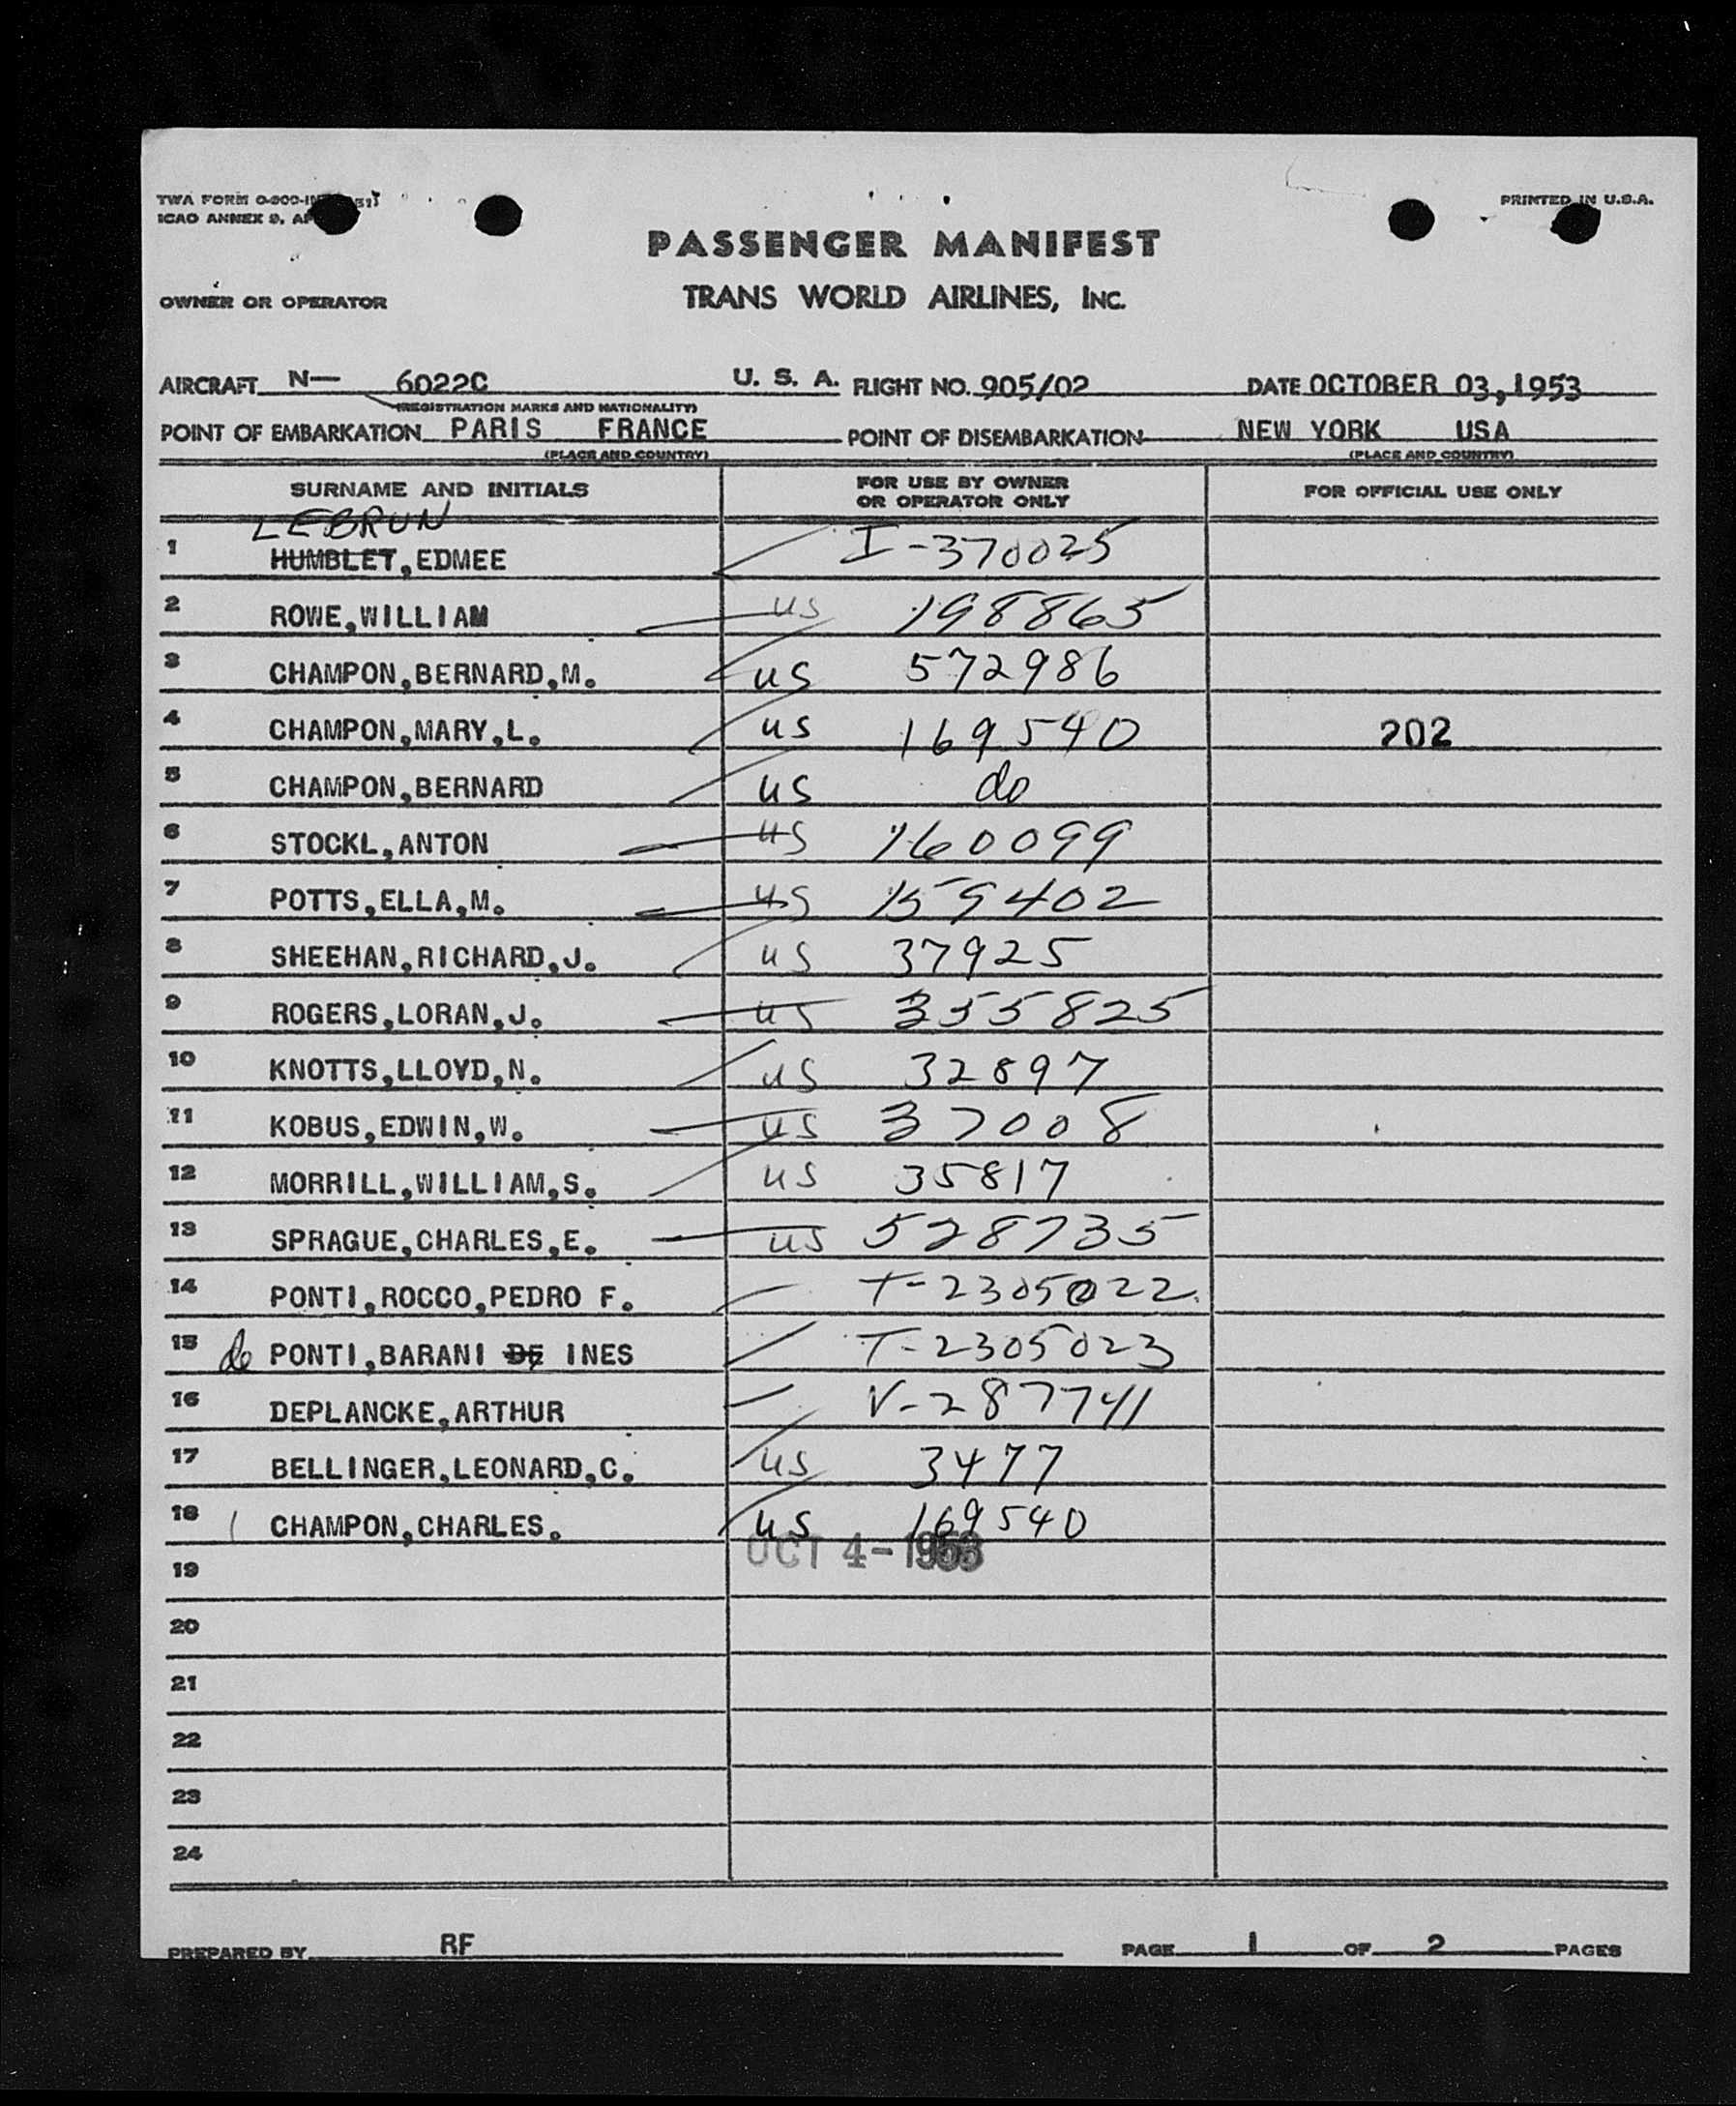 TWA FORM 0-900-IN 51)
PRINTED IN U.S.A.
ICAO ANNEX 9, AP
PASSENGER MANIFEST
OWNER OR OPERATOR
TRANS WORLD AIRLINES, INC.
AIRCRAFT N— 6022C U. S. A. FLIGHT NO. 905/02 DATE OCTOBER 03,1953
(REGISTRATION MARKS AND NATIONALITY)
POINT OF EMBARKATION PARIS FRANCE POINT OF DISEMBARKATION NEW YORK USA
(PLACE AND COUNTRY) (PLACE AND COUNTRY)
SURNAME AND INITIALS FOR USE BY OWNER OR OPERATOR ONLY FOR OFFICIAL USE ONLY
LEBRUN
1 HUMBLET,EDMEE I-370025
2 ROWE,WILLIAM us 198865
3 CHAMPON,BERNARD,M. us 572986
4 CHAMPON,MARY,L. us 169540 202
5 CHAMPON,BERNARD us do
6 STOCKL,ANTON us 160099
7 POTTS,ELLA,M. us 159402
8 SHEEHAN,RICHARD,J. us 37925
9 ROGERS,LORAN,J. us 355825
10 KNOTTS,LLOYD,N. us 32897
11 KOBUS,EDWIN,W. us 37008
12 MORRILL,WILLIAM,S. us 35817
13 SPRAGUE,CHARLES,E. us 528735
14 PONTI,ROCCO,PEDRO F. T-2305022
15 de PONTI,BARANI DE INES T-2305023
16 DEPLANCKE,ARTHUR V-287741
17 BELLINGER,LEONARD,C. us 3477
18 CHAMPON,CHARLES. us 169540
OCT 4-1953
19
20
21
22
23
24
PREPARED BY RF PAGE 1 OF 2 PAGES